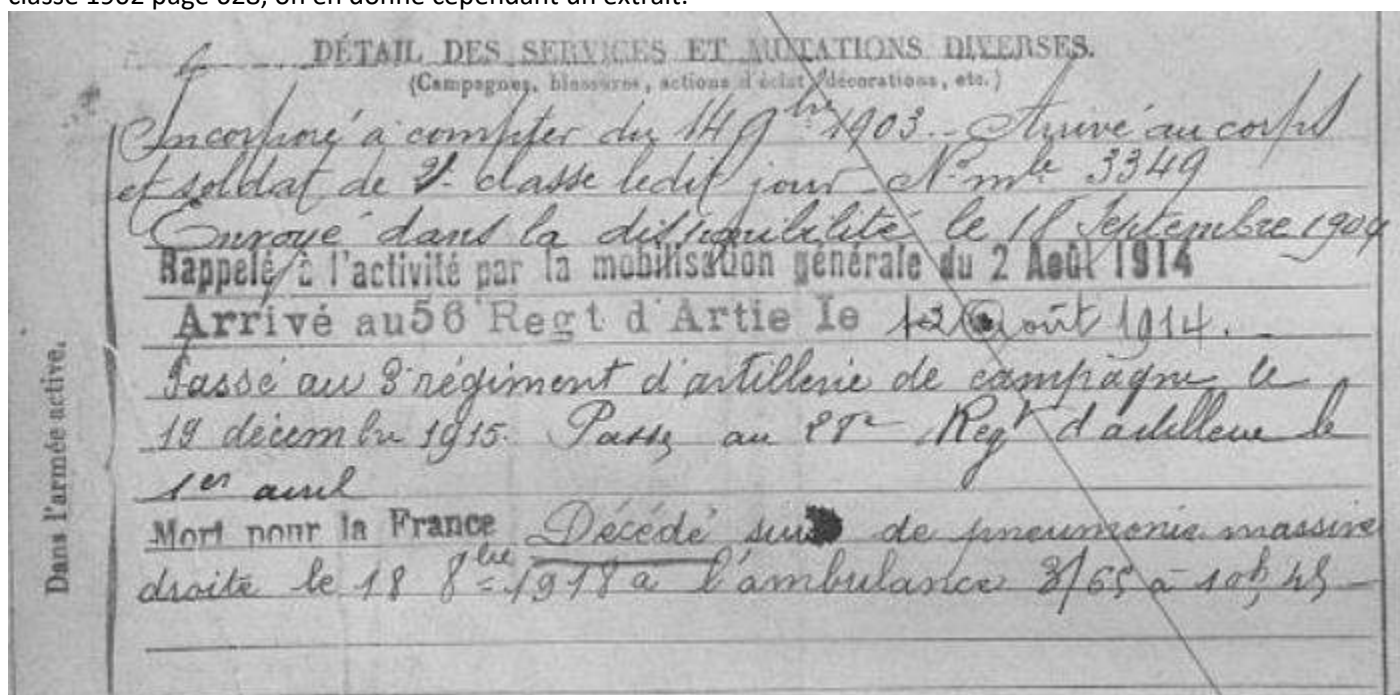 classe 1902 page 628, on en donne cependant un extrait.
DÉTAIL DES SERVICES ET MUTATIONS DIVERSES.
(Campagnes, blessures, actions d'éclat, décorations, etc.)
Incorporé à compter du 14 9bre 1903. Arrivé au corps
et soldat de 2e classe ledit jour N° mle 3349
Envoyé dans la disponibilité le 18 Septembre 1904
Rappelé à l'activité par la mobilisation générale du 2 Août 1914
Arrivé au 56 Regt d'Artie le 12 Août 1914.
Passé au 3e régiment d'artillerie de campagne le
19 décembre 1915. Passé au Regt d'artillerie le
1er avril
Mort pour la France Décédé de pneumonie massive
droite le 18 8bre 1918 à l'ambulance 3/65 à 10h,45
Dans l'armée active.